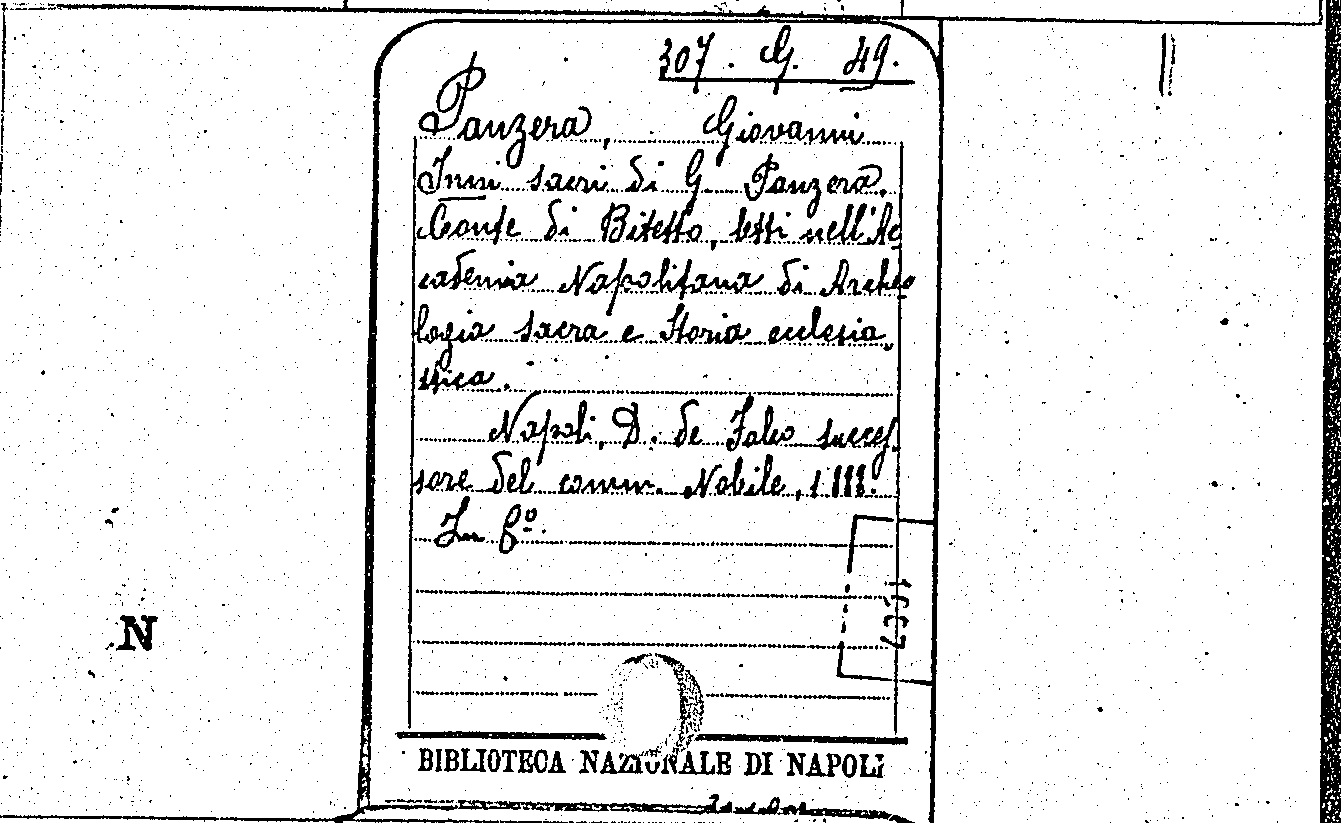 307. G. 49.
Panzera, Giovanni
Inni sacri di G. Panzera,
Conte di Bitetto, letti nell'Ac
cademia Napolitana di Archeo
logia sacra e Storia ecclesia„
stica.
Napoli, D. de Falco succes
sore del comm. Nobile,
In 8º.
N
BIBLIOTECA NAZIONALE DI NAPOLI